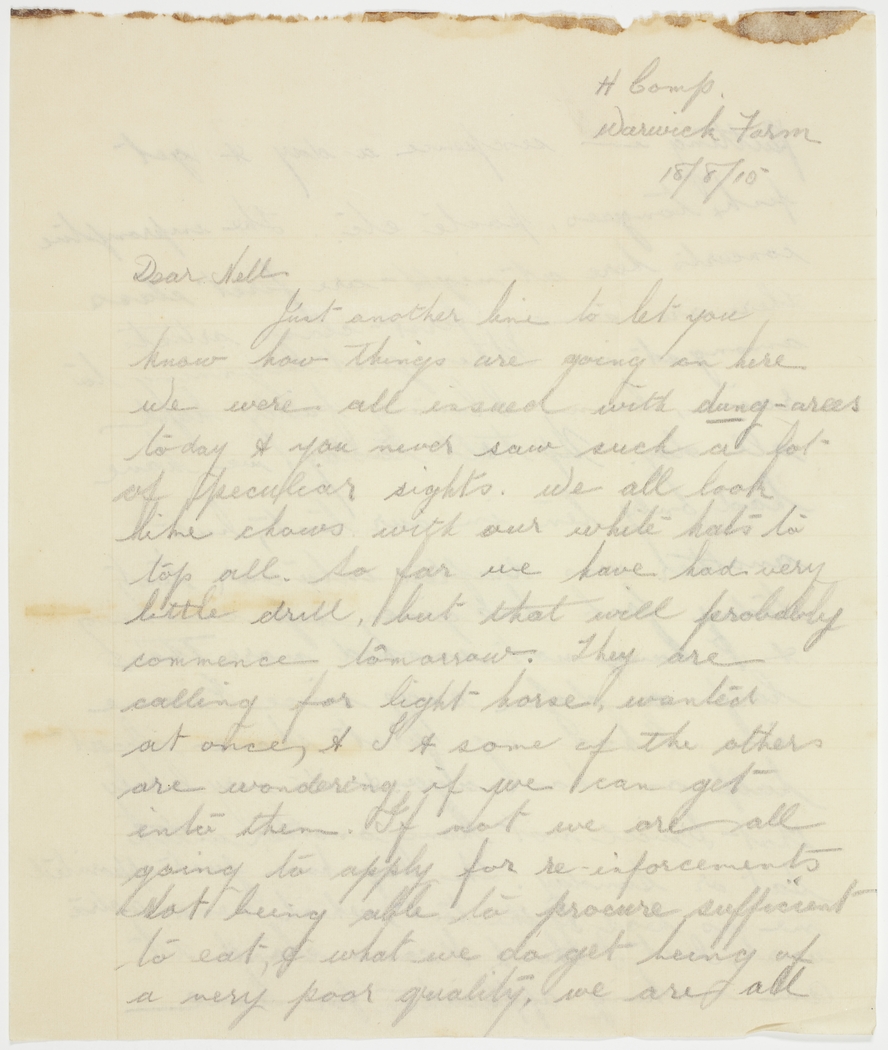 H Comp.
Warwick Farm
18/8/15
Dear Nell
Just another line to let you
know how things are going on here
We were all issued with dung-arees
today & you never saw such a lot
of peculiar sights. We all look
like chows with our white hats to
top all. So far we have had very
little drill, but that will probably
commence tomorrow. They are
calling for light horse, wanted
at once, & I & some of the others
are wondering if we can get
into them. If not we are all
going to apply for re-inforcements
Not being able to procure sufficient
to eat, & what we do get being of
a very poor quality, we are all